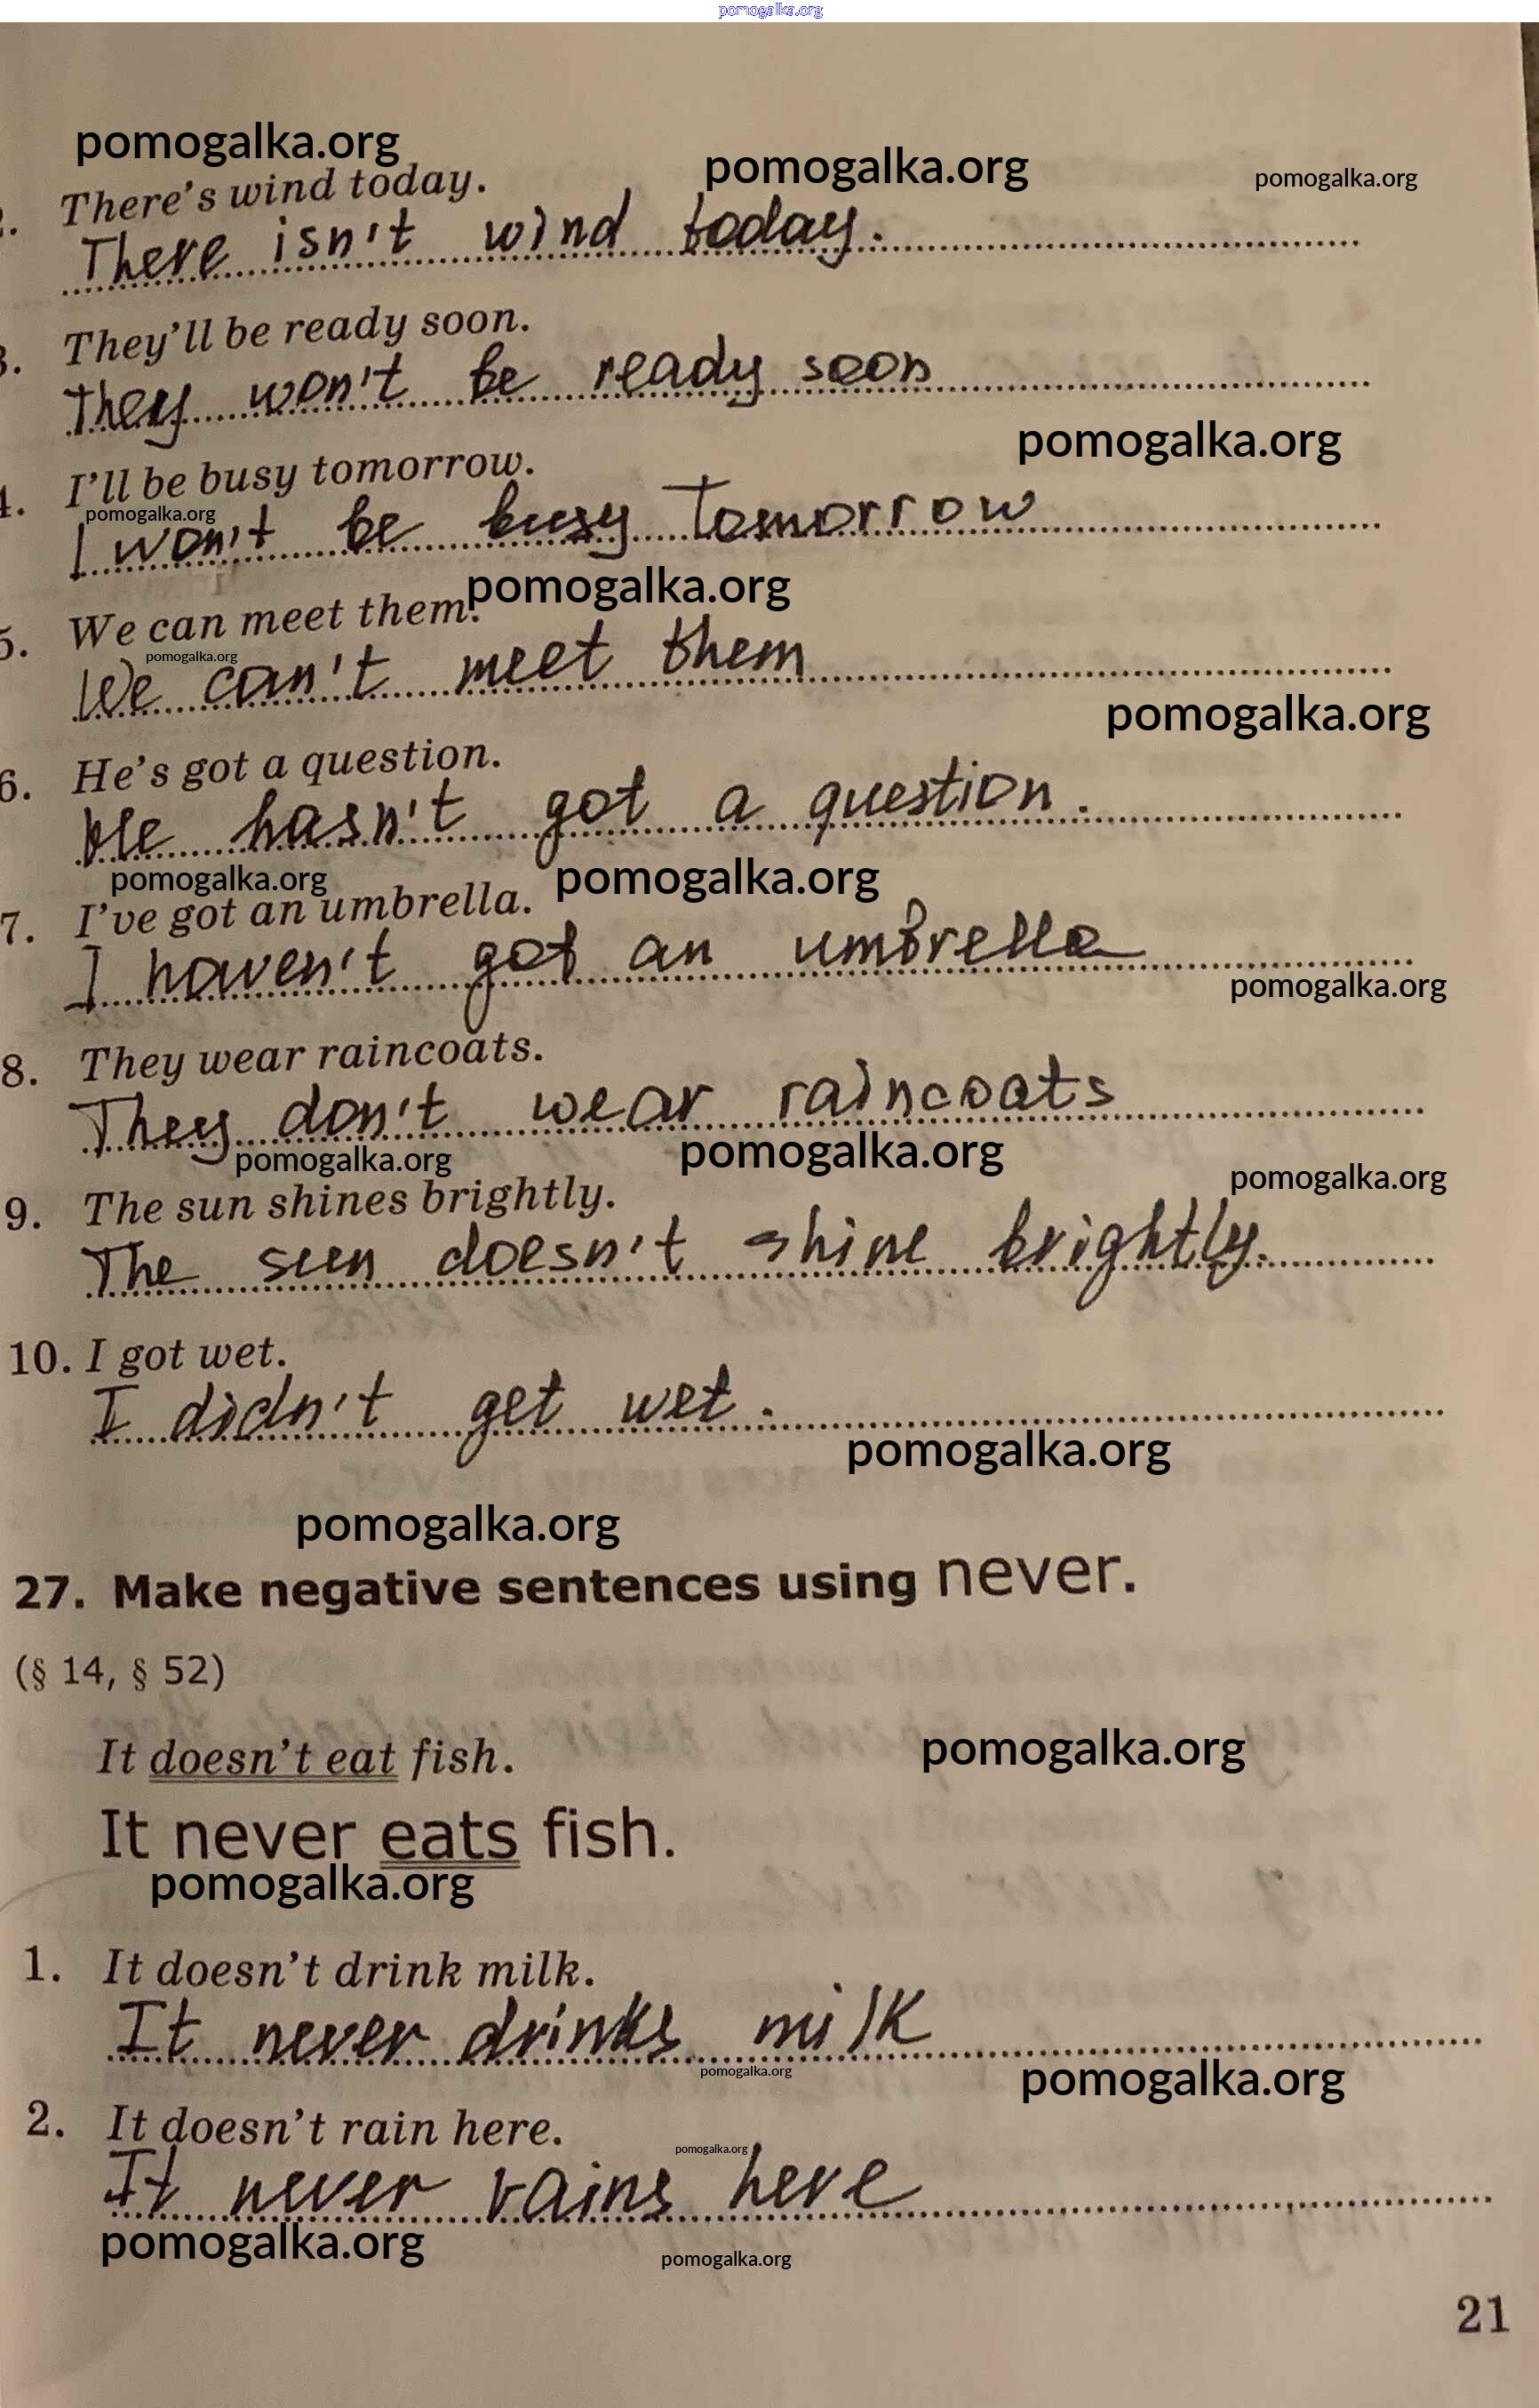 pomogalka.org
pomogalka.org
pomogalka.org
pomogalka.org
There's wind today.
There isn't wind today.
3. They'll be ready soon.
They won't be ready soon
pomogalka.org
4. I'll be busy tomorrow.
pomogalka.org
I won't be busy Tomorrow
pomogalka.org
5. We can meet them.
pomogalka.org
We can't meet them
pomogalka.org
6. He's got a question.
He hasn't got a question.
pomogalka.org
pomogalka.org
7. I've got an umbrella.
I haven't got an umbrella
pomogalka.org
8. They wear raincoats.
They don't wear raincoats
pomogalka.org
pomogalka.org
pomogalka.org
9. The sun shines brightly.
The sun doesn't shine brightly.
10. I got wet.
I didn't get wet.
pomogalka.org
pomogalka.org
27. Make negative sentences using never.
(§ 14, § 52)
pomogalka.org
It doesn't eat fish.
It never eats fish.
pomogalka.org
1. It doesn't drink milk.
It never drinks milk
pomogalka.org
pomogalka.org
2. It doesn't rain here.
pomogalka.org
It never rains here
pomogalka.org
pomogalka.org
21